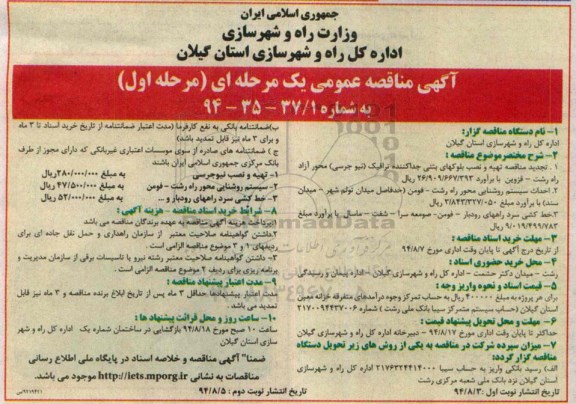 جمهوری اسلامی ایران
وزارت راه و شهرسازی
اداره کل راه و شهرسازی استان گیلان
آگهی مناقصه عمومی یک مرحله ای (مرحله اول)
به شماره ۳۷/۱ - ۳۵ - ۹۴
۱- نام دستگاه مناقصه گزار:
اداره کل راه و شهرسازی استان گیلان
۲- شرح مختصرموضوع مناقصه :
۱. تجدید مناقصه تهیه و نصب بلوکهای بتنی جداکننده ترافیک (نیو جرسی) محور آزاد
راه رشت - قزوین با برآورد مبلغ ۲۶/۹۰۹/۶۶۷/۲۹۲ ریال
۲.احداث سیستم روشنایی محور راه رشت - فومن (حدفاصل میدان توکم شهر - میدان
سند) با برآورد مبلغ ۳/۸۴۳/۳۲۷/۰۵۰ ریال
۳.خط کشی سرد راههای رودبار - فومن- صومعه سرا - شفت - ماسال با برآورد مبلغ
۹/۰۱۹/۴۹۹/۷۸۳ ریال
۳- مهلت خرید اسناد مناقصه :
از تاریخ درج آگهی تا پایان وقت اداری مورخ ۹۴/۸/۷
۴- محل خرید حضوری اسناد :
رشت - میدان دکتر حشمت - اداره کل راه و شهرسازی گیلان - اداره پیمان و رسیدگی
۵- قیمت اسناد و نحوه واریز وجه :
برای هر پروژه به مبلغ ۴۰۰۰۰۰ ریال به حساب تمرکز وجوه درآمدهای متفرقه خزانه معین
استان گیلان (حساب سیستم متمرکز سیبا بانک ملی رشت) شماره ۲۱۷۰۰۹۴۴۳۷۰۰۶
۶- مهلت و محل تحویل پیشنهاد قیمت :
حداکثر تا پایان وقت اداری مورخ ۹۴/۸/۱۷ - دبیرخانه اداره کل راه و شهرسازی گیلان
۷- میزان سپرده شرکت در مناقصه به یکی از روش های زیر تحویل دستگاه
مناقصه گزار گردد:
الف) رسید بانکی واریز به حساب سیبا ۲۱۷۶۳۲۴۴۱۴۰۰۰ اداره کل راه و شهرسازی
استان گیلان نزد بانک ملی شعبه مرکزی رشت
تاریخ انتشار نوبت اول :۹۴/۸/۳
ب)ضمانتنامه بانکی به نفع کارفرما (مدت اعتبار ضمانتنامه از تاریخ خرید اسناد تا ۳ ماه
و برای ۳ ماه نیز قابل تمدید باشد)
ج ) ضمانتنامه های صادره از سوی موسسات اعتباری غیربانکی که دارای مجوز از طرف
بانک مرکزی جمهوری اسلامی ایران باشند
۱- تهیه و نصب نیوجرسی به مبلغ ۲۸۰/۰۰۰/۰۰۰ریال
۲- سیستم روشنایی محور راه رشت - فومن به مبلغ ۴۷/۵۰۰/۰۰۰ ریال
۳- خط کشی سرد راههای رودبار و ... به مبلغ ۵۲/۰۰۰/۰۰۰ ریال
۸- شرایط خرید اسناد مناقصه - هزینه آگهی :
۱.پرداخت هزینه آگهی مناقصه به عهده برندگان مناقصه می باشد
۲.داشتن گواهینامه صلاحیت معتبر از سازمان راهداری و حمل نقل جاده ای برای
ردیفهای ۱ و ۳ موضوع مناقصه الزامی است .
۳- داشتن گواهینامه صلاحیت معتبر رشته نیرو یا تاسیسات برقی از سازمان مدیریت و
برنامه ریزی برای ردیف ۲ موضوع مناقصه الزامی است .
۹- مدت اعتبار پیشنهاد مناقصه :
مدت اعتبار پیشنهادها حداقل ۳ ماه پس از تاریخ ابلاغ برنده مناقصه و ۳ ماه نیز قابل
تمدید می باشد .
۱۰- ساعت روز و محل قرائت پیشنهاد ها :
ساعت ۱۰ صبح مورخ ۹۴/۸/۱۸ بازگشایی در ساختمان شماره یک اداره کل راه و شهر
سازی استان گیلان
ضمنا" آگهی مناقصه و خلاصه اسناد در پایگاه ملی اطلاع رسانی
مناقصات به نشانی http://iets.mporg.ir موجود می باشد.
تاریخ انتشار نوبت دوم : ۹۴/۸/۵